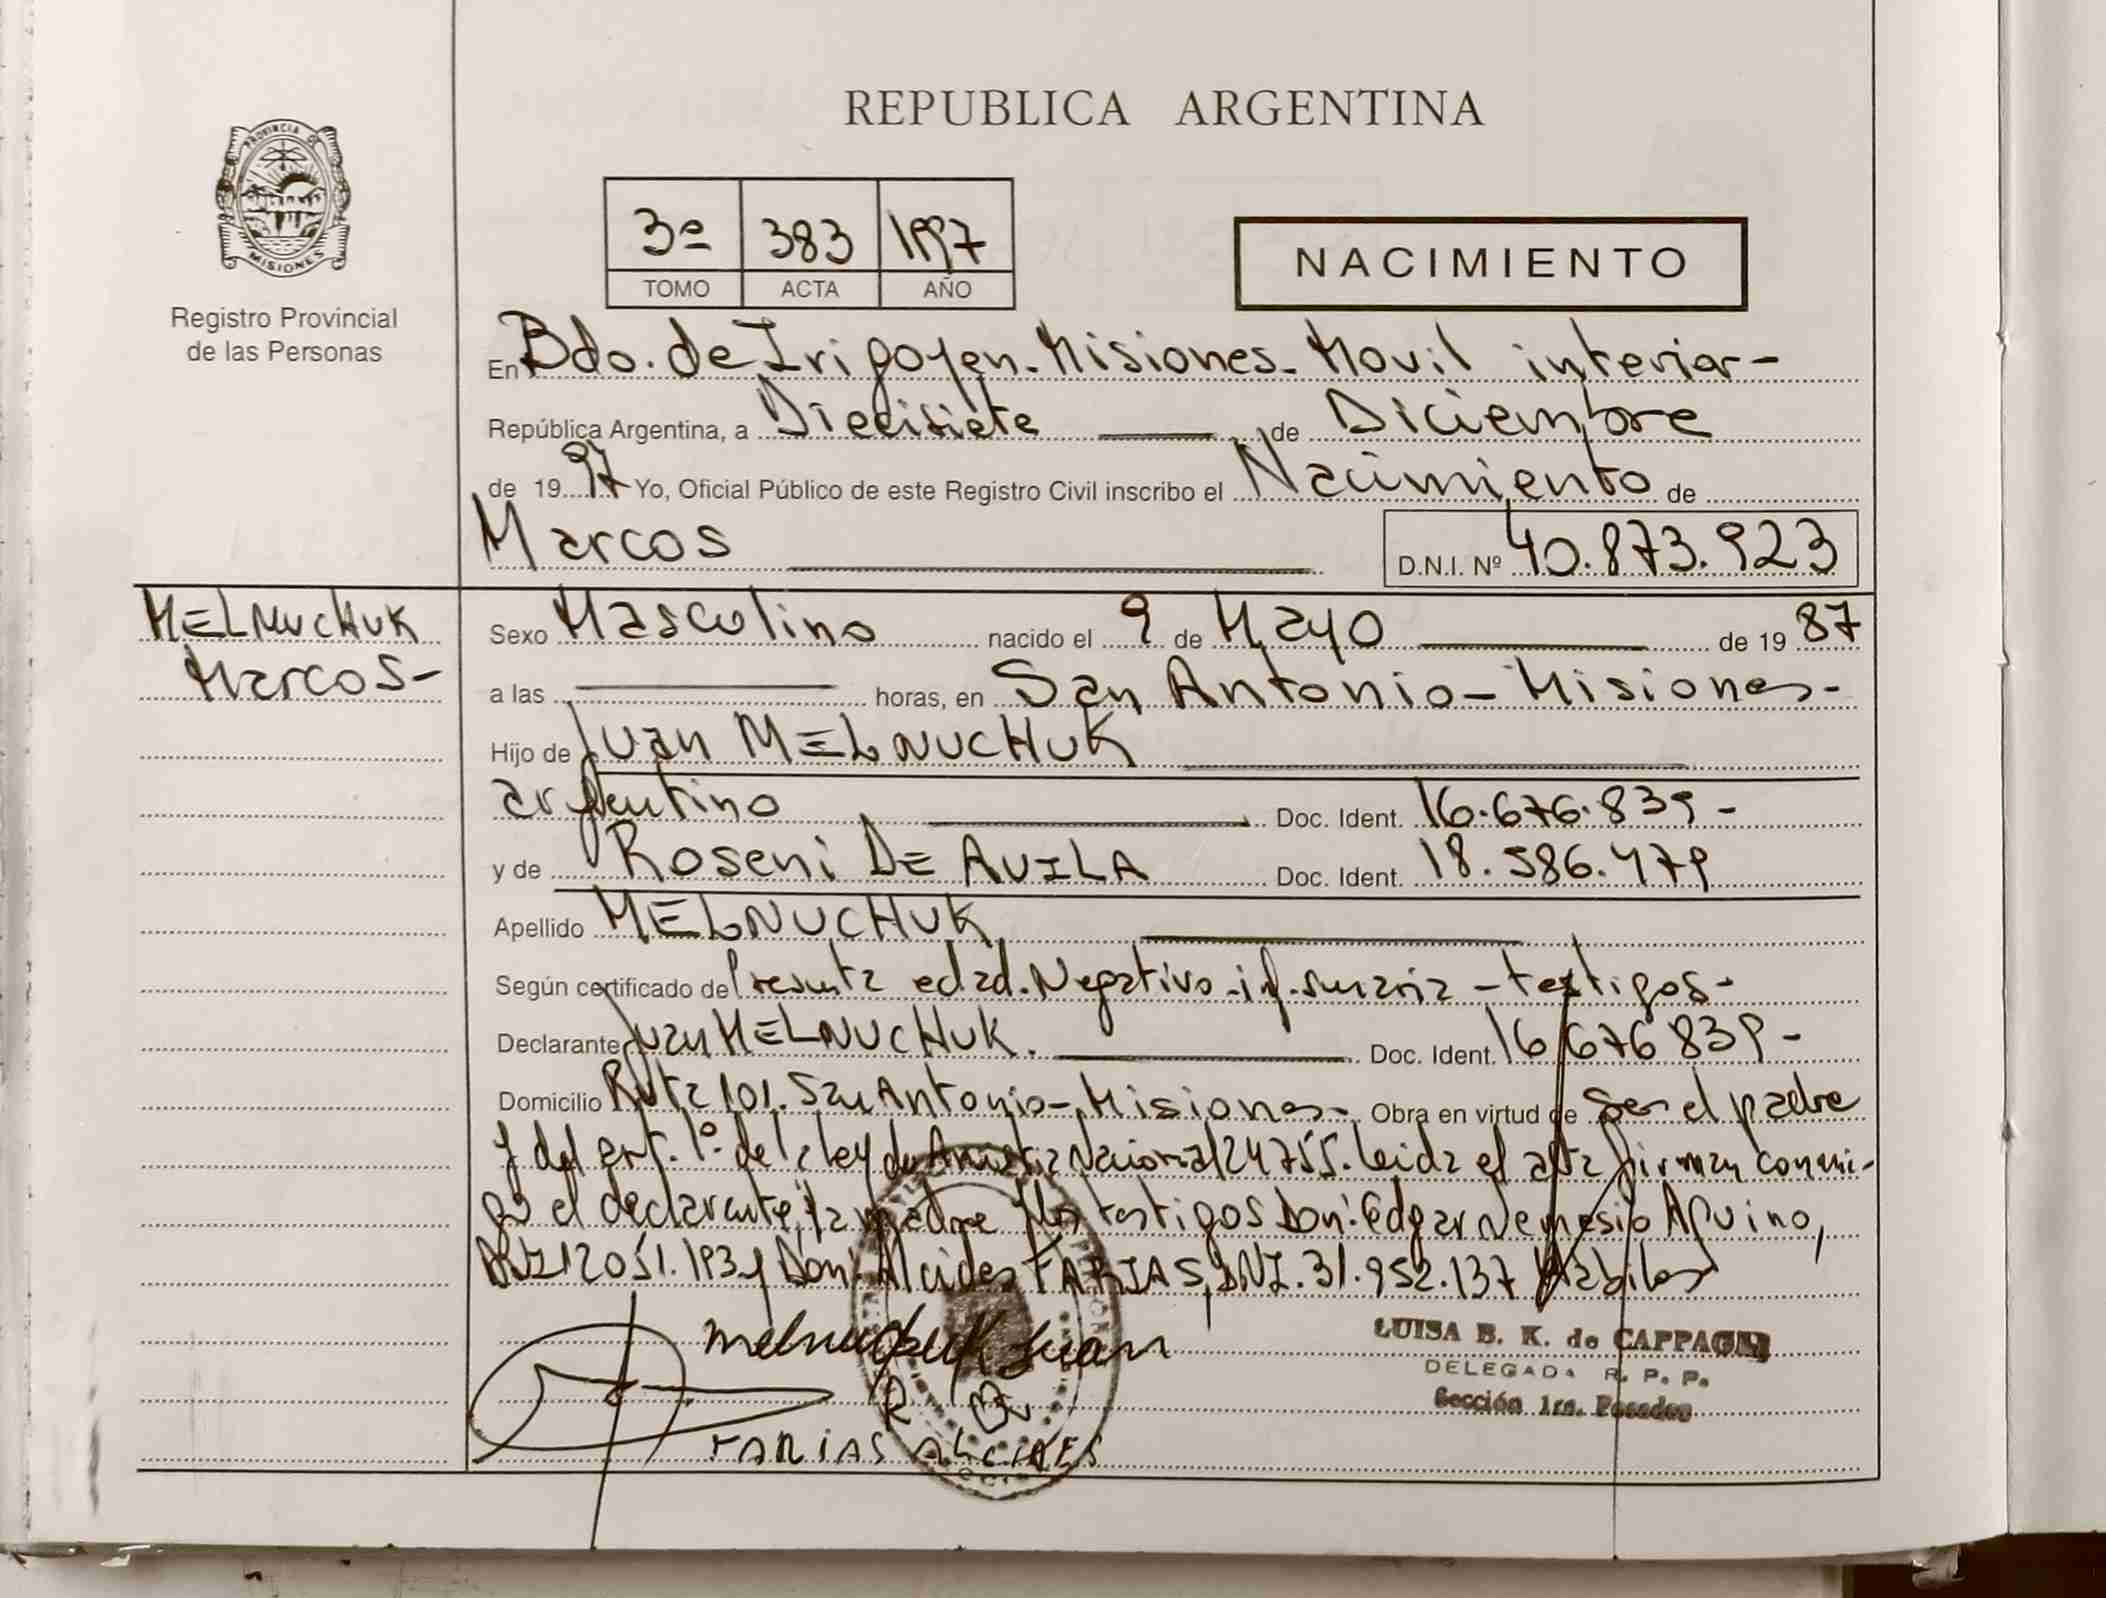 REPUBLICA ARGENTINA
PROVINCIA DE
MISIONES
Registro Provincial
de las Personas
3º 383 1997
TOMO ACTA AÑO
NACIMIENTO
En Bdo. de Irigoyen - Misiones - Movil interior -
República Argentina, a Diecisiete de Diciembre
de 1997 Yo, Oficial Público de este Registro Civil inscribo el Nacimiento de
Marcos D.N.I. Nº 40.873.923
MELNUCHUK
Marcos -
Sexo Masculino nacido el 9 de Mayo de 1987
a las horas, en San Antonio - Misiones -
Hijo de Juan MELNUCHUK
argentino Doc. Ident. 16.676.839 -
y de Roseni DE AVILA Doc. Ident. 18.586.479
Apellido MELNUCHUK
Según certificado de Presunta edad. Negativo - inf. sumaria - testigos -
Declarante Juan MELNUCHUK. Doc. Ident. 16 676 839 -
Domicilio Ruta 101. San Antonio - Misiones - Obra en virtud de ser el padre
y del art. 1º de la ley de Amnistia Nacional 24755. Leida el acta firman conmi-
go el declarante, la madre y los testigos Don: Edgar Nemesio Aquino,
DNI 12051.193 y Don: Alcides FARIAS, DNI. 31.952.137 Habiles
Melnuchuk Juan
R
FARIAS ALCIDES
LUISA B. K. de
DELEGADA R. P. P.
Sección 1ra. Posadas